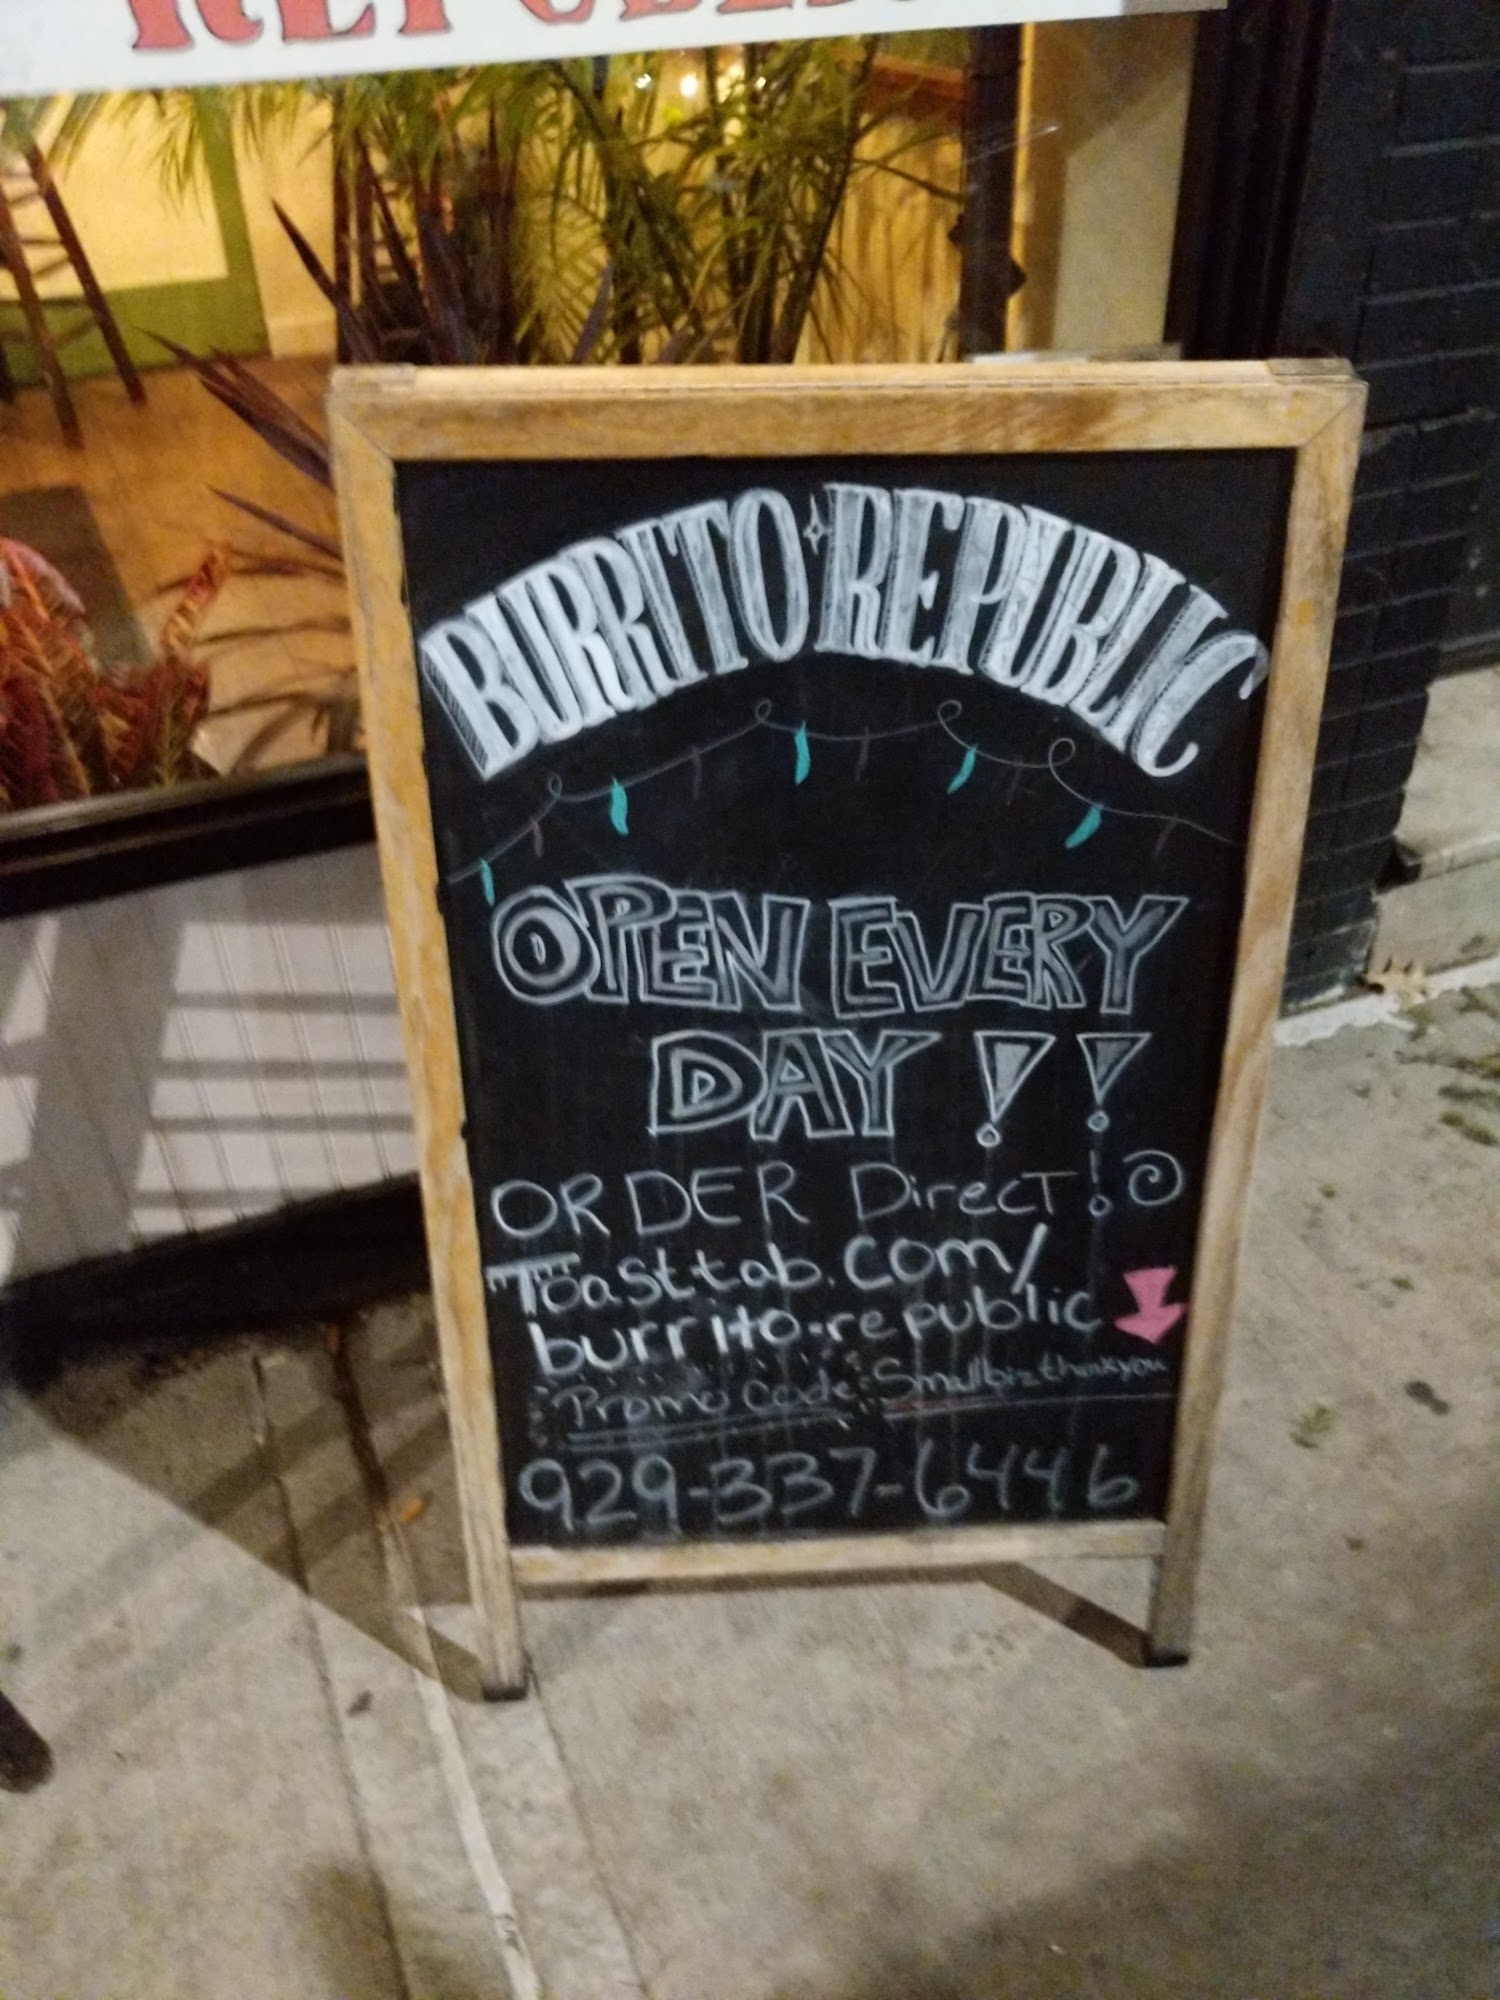 BURRITO REPUBLIC
OPEN EVERY
DAY!!
ORDER DirecT! @
Toasttab.com/
burrito-republic
Promo Code: Smallbizthankyou
929-337-6446